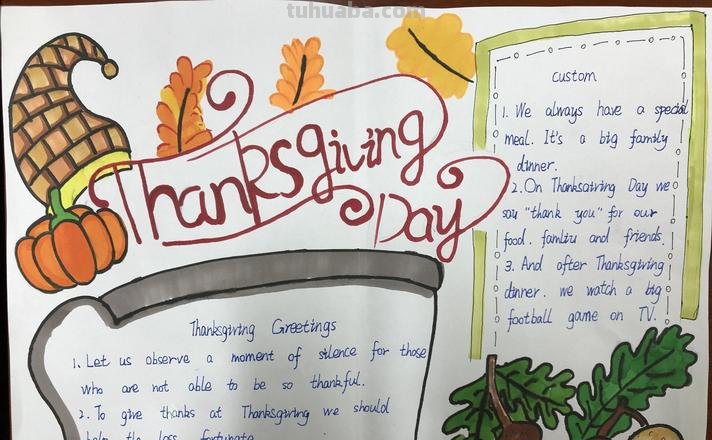 tuhuaba.com
Thanksgiving
Day
custom
1. We always have a special
meal. It's a big family
dinner.
2. On Thanksgiving Day we
say "thank you" for our
food. familiu and friends.
3. And after Thanksgiving
dinner. we watch a big
football game on TV.
Thanksgiving Greetings
1. Let us observe a moment of silence for those
who are not able to be so thankful.
2. To give thanks at Thanksgiving we should
help the less fortunate